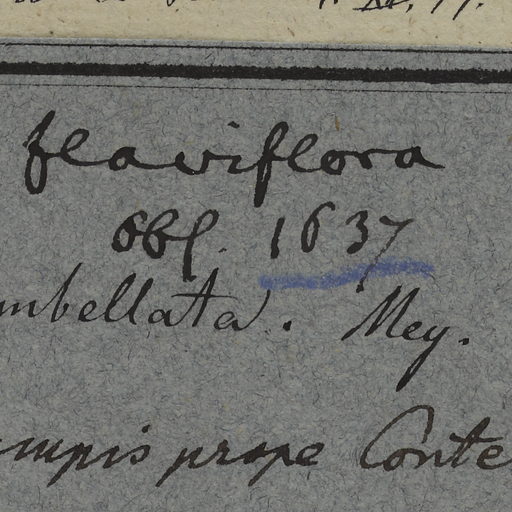 flaviflora
obs. 1637
mbellata. Mey.
mpis prope Conte